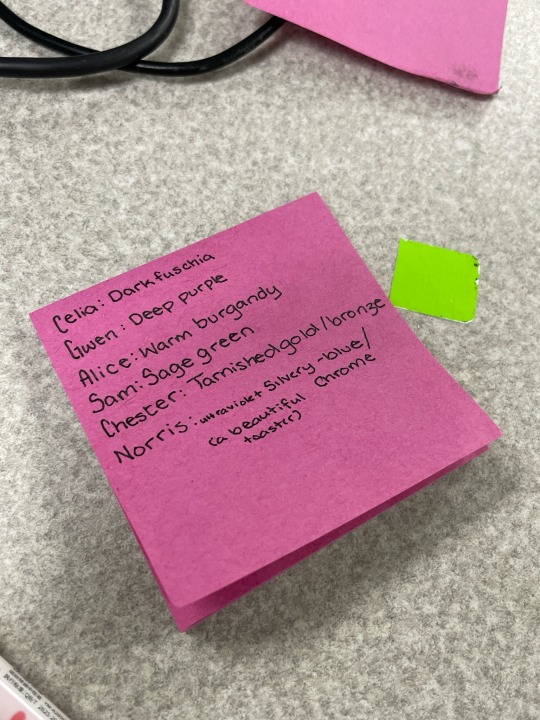 Celia: Dark fuschia
Gwen: Deep purple
Alice: Warm burgandy
Sam: Sage green
Chester: Tarnished gold/bronze
Norris: ultraviolet silvery-blue/
(a beautiful Chrome
toaster)